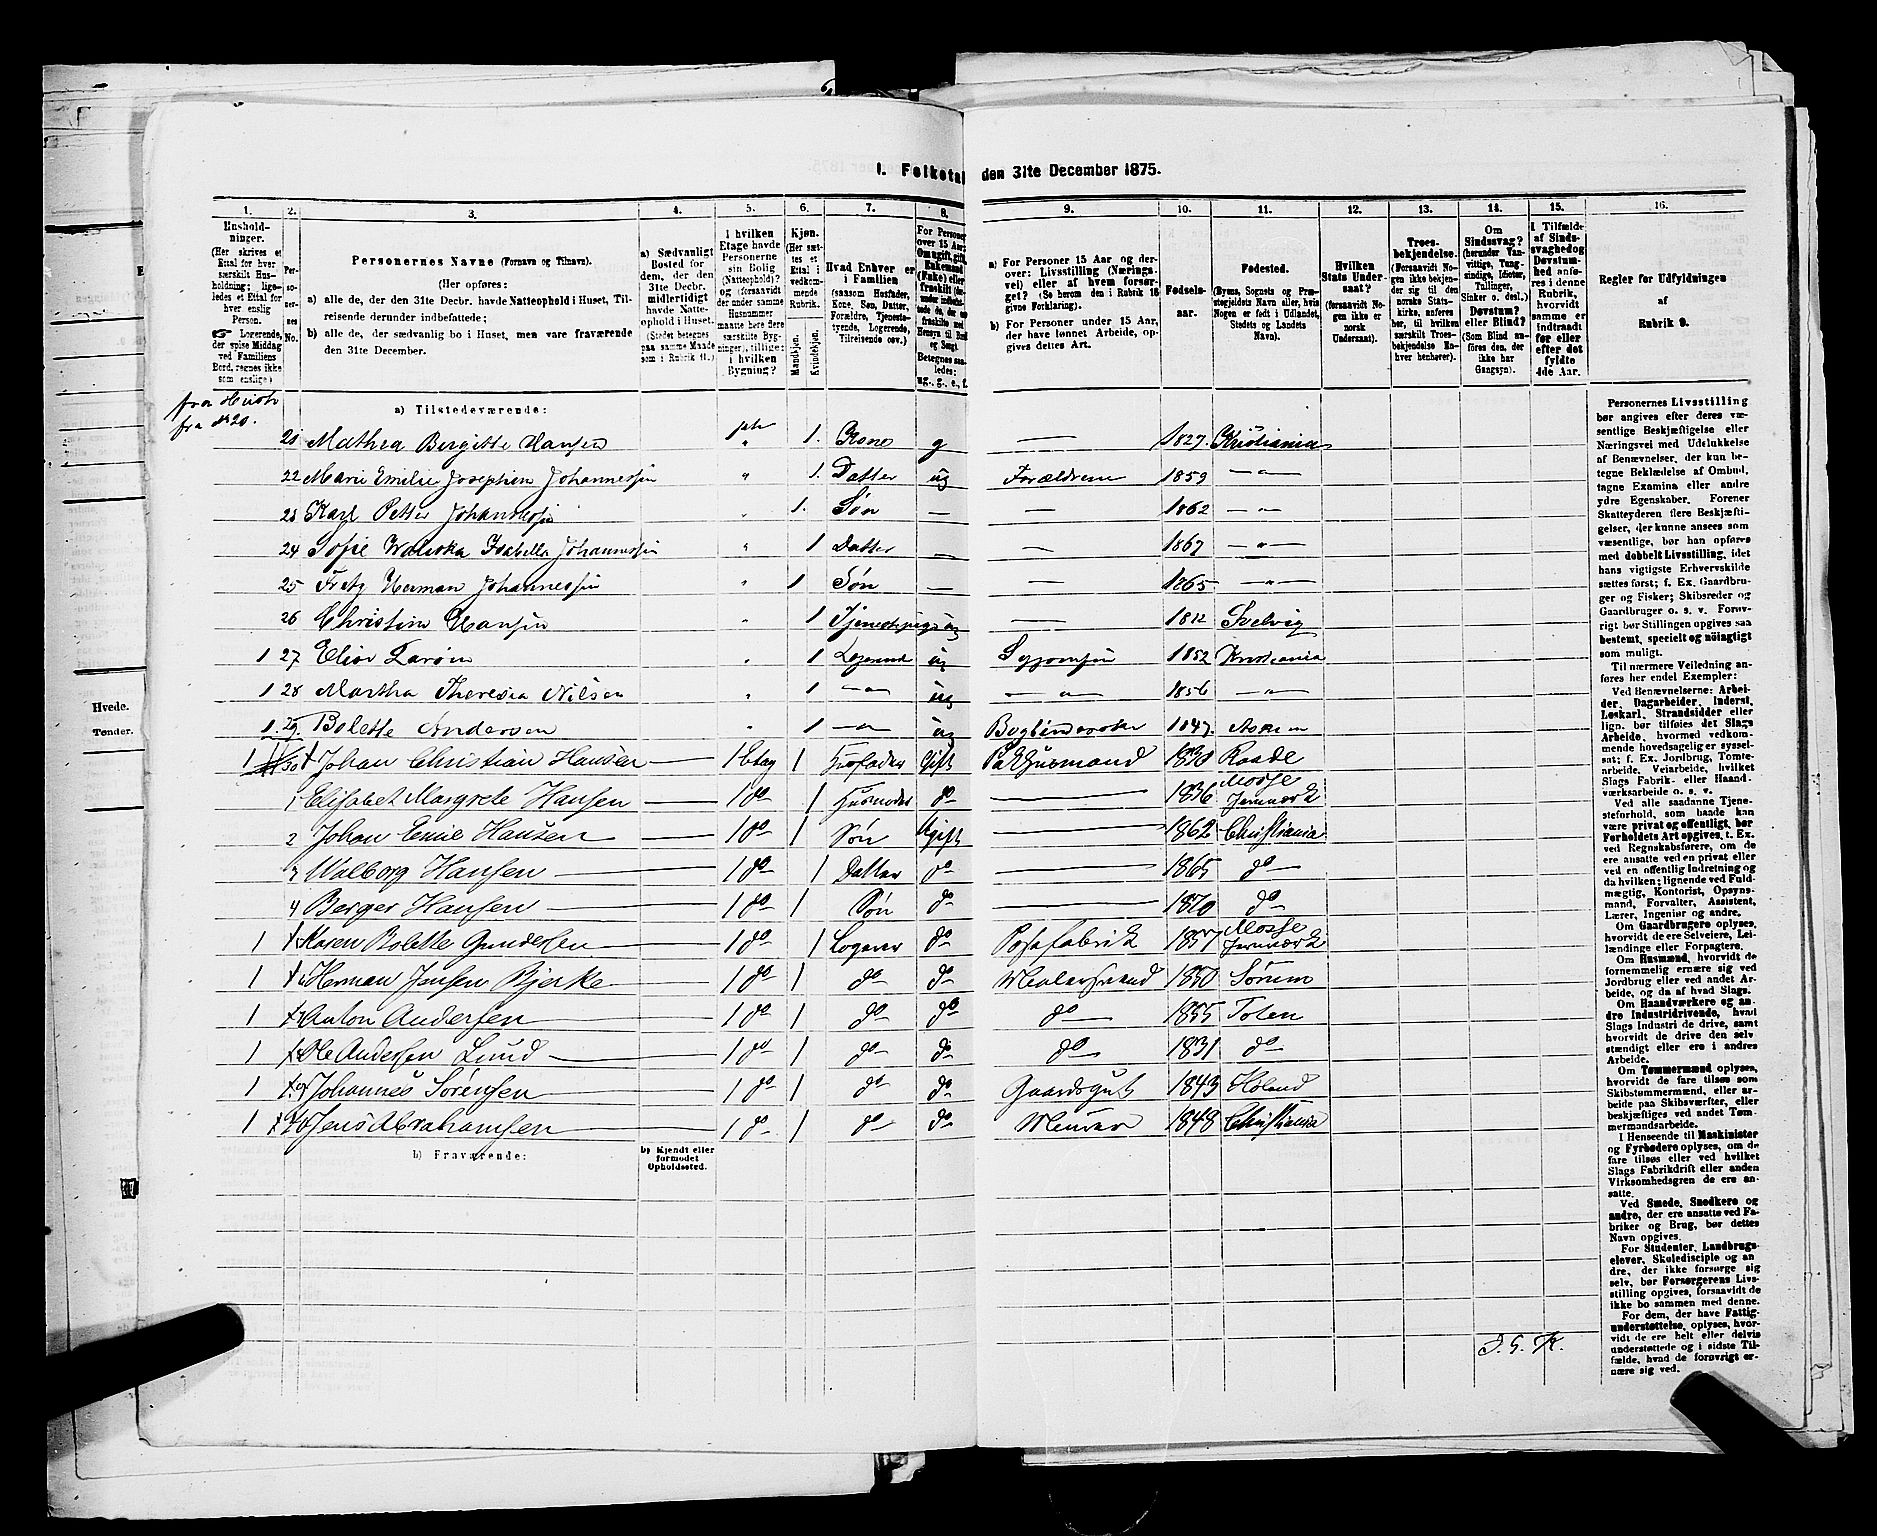 I. Folketal den 31te December 1875.
1. 2. 3. 4. 5. 6. 7. 8. 9. 10. 11. 12. 13. 14. 15. 16.
Husholdninger.
(Her skrives et Ettal for hver særskilt Husholdning; ligeledes et Ettal for hver enslig Person.
Logerende, der spise Middag ved Familiens Bord, regnes ikke som enslige.)
Personernes No.
Personernes Navne (Fornavn og Tilnavn).
(Her opføres:
a) alle de, der den 31te Decbr. havde Natteophold i Huset, Tilreisende derunder indbefattede;
b) alle de, der sædvanlig bo i Huset, men vare fraværende den 31te December.
a) Sædvanligt Bosted for dem, der den 31te Decbr. midlertidigt havde Natteophold i Huset.
(Stedet betegnes paa samme Maade som i Rubrik 11.)
I hvilken Etage havde Personerne sin Bolig (Natteophold)? og (forsaavidt der under samme Husnummer maatte høre flere særskilte Bygninger), tillige: i hvilken Bygning?
Kjøn.
(Her sættes et Ettal i vedkommende Rubrik.
Mandkjøn.
Kvindekjøn.
Hvad Enhver er i Familien
(saasom Husfader, Kone, Søn, Datter, Forældre, Tjenestetyende, Logerende, Tilreisende osv.)
For Personer over 15 Aar:
Betegnes saaledes:
ug., g., e., f.
a) For Personer 15 Aar og derover: Livsstilling (Næringsvei) eller af hvem forsørget? (Se herom den i Rubrik 16 givne Forklaring).
b) For Personer under 15 Aar, der have lønnet Arbeide, opgives dettes Art.
Fødselsaar.
Fødested.
(Byens, Sognets og Præstegjeldets Navn eller, hvis Nogen er født i Udlandet, Stedets og Landets Navn).
Hvilken Stats Undersaat?
(forsaavidt Nogen ikke er norsk Undersaat).
Troesbekjendelse.
(Forsaavidt Nogen ikke bekjender sig til den norske Statskirke, anføres her, til hvilken særskilt Troesbekjendelse Enhver henhører).
Om Sindssvag? (herunder Vanvittige, Tungsindige, Idioter, Tullinger, Sinker o. desl.)
Døvstum? eller Blind?
(Som Blind anføres den, der ikke har Gangsyn).
I Tilfælde af Sindssvaghed og Døvstumhed anføres i denne Rubrik, hvorvidt samme er indtraadt før eller efter det fyldte 4de Aar.
Regler for Udfyldningen
af
Rubrik 9.
fra No 20.
a) Tilstedeværende:
21 Mathea Bergitte Hansen " 1. Kone g — 1827. Kristiania
22 Marie Emilie Josephine Johannessen " 1. Datter ug Forældrene 1859 —"—
23 Karl Petter Johannessen " 1. Søn — — 1862 —"—
24 Sofie Isabella Johannessen " 1 Datter — — 1867 —"—
25 Fretz Herman Johannessen " 1 Søn — — 1865 —"—
26 Christine Hansen " 1 Tjenestepige ug — 1812 Svelvig
1 27 " 1 Logerende ug 1852 Kristiania
1 28 Martha Theresia Nilsen " 1 —"— ug —"— 1856 —"—
1. 29. Bolette Andersen " 1 —"— ug 1847.
1 30 Johan Christian Hansen — 1 Etag 1 Husfader Gift Pakhusmand 1830 Raade
1 Elisabet Margrete Hansen — 1 do 1 Husmoder do — 1836 Mosse Jernverk
2 Johan Emil Hansen — 1 do 1 Søn Ugift — 1862 Christiania
3 Walborg Hansen — 1 do 1 Datter do — 1865 do —
4 Berger Hansen — 1 do 1 Søn do — 1870 do
1 Karen Bolette Gundersen 1 do 1 Logerer do Posefabrik 1857 Mosse Jernverk
1 Herman Jensen Bjerke 1 do 1 do do 1850 Sørum
1 Anton Andersen — 1 do 1 do do do 1855 Toten
1 Ole Andersen Lund — 1 do 1 do do do 1831 do
1 Johannes Sørensen — 1 do 1 do do Gaardsgut 1843 Høland
1 Jens Abrahamsen — 1 do 1 do do Murer 1848 Christiania
b) Fraværende:
b) Kjendt eller formodet Opholdssted.
Personernes Livsstilling bør angives efter deres væsentlige Beskjæftigelse eller Næringsvei med Udelukkelse af Benævnelser, der kun betegne Beklædelse af Ombud, tagne Examina eller andre ydre Egenskaber. Forener Skatteyderen flere Beskjæftigelser, der kunne ansees som væsentlige, bør han opføres med dobbelt Livsstilling, idet hans vigtigste Erhvervskilde sættes først; f. Ex. Gaardbruger og Fisker; Skibsreder og Gaardbruger o. s. v. Forøvrigt bør Stillingen opgives saa bestemt, specielt og nøiagtigt som muligt.
Til nærmere Veiledning anføres her endel Exempler:
Ved Benævnelserne: Arbeider, Dagarbeider, Inderst, Løskarl, Strandsidder eller lign. bør tilføies det Slags Arbeide, hvormed vedkommende hovedsagelig er sysselsat; f. Ex. Jordbrug, Tomtearbeide, Veiarbeide, hvilket Slags Fabrik- eller Haandværksarbeide o. s. v.
Ved alle saadanne Tjenesteforhold, som baade kan være privat og offentligt, bør Forholdets Art opgives, t. Ex. ved Regnskabsførere, om de ere ansatte ved en privat eller ved en offentlig Indretning og da hvilken; lignende ved Fuldmægtig, Kontorist, Opsynsmand, Forvalter, Assistent, Lærer, Ingeniør og andre.
Om Gaardbrugere oplyses, hvorvidt de ere Selveiere, Leilændinge eller Forpagtere.
Om Husmænd, hvorvidt de fornemmelig ernære sig ved Jordbrug eller ved andet Arbeide, og da af hvad Slags.
Om Haandværkere og andre Industridrivende, hvad Slags Industri de drive, samt hvorvidt de drive den selvstændigt eller ere i andres Arbeide.
Om Tømmermænd oplyses, hvorvidt de fare tilsøs som Skibstømmermænd, eller arbeide paa Skibsværfter, eller beskjæftiges ved andet Tømmermandsarbeide.
I Henseende til Maskinister og Fyrbødere oplyses, om de fare tilsøs eller ved hvilket Slags Fabrikdrift eller anden Virksomhedsgren de ere ansatte.
Ved Smede, Snedkere og andre, der ere ansatte ved Fabriker og Brug, bør dettes Navn opgives.
For Studenter, Landbrugselever, Skoledisciple og andre, der ikke forsørge sig selv, bør Forsørgerens Livsstilling opgives, forsaavidt de ikke bo sammen med denne.
For dem, der have Fattigunderstøttelse, oplyses, hvorvidt de ere helt eller delvis understøttede og i sidste Tilfælde, hvad de forøvrigt ernære sig ved.
Hvede.
Tønder.